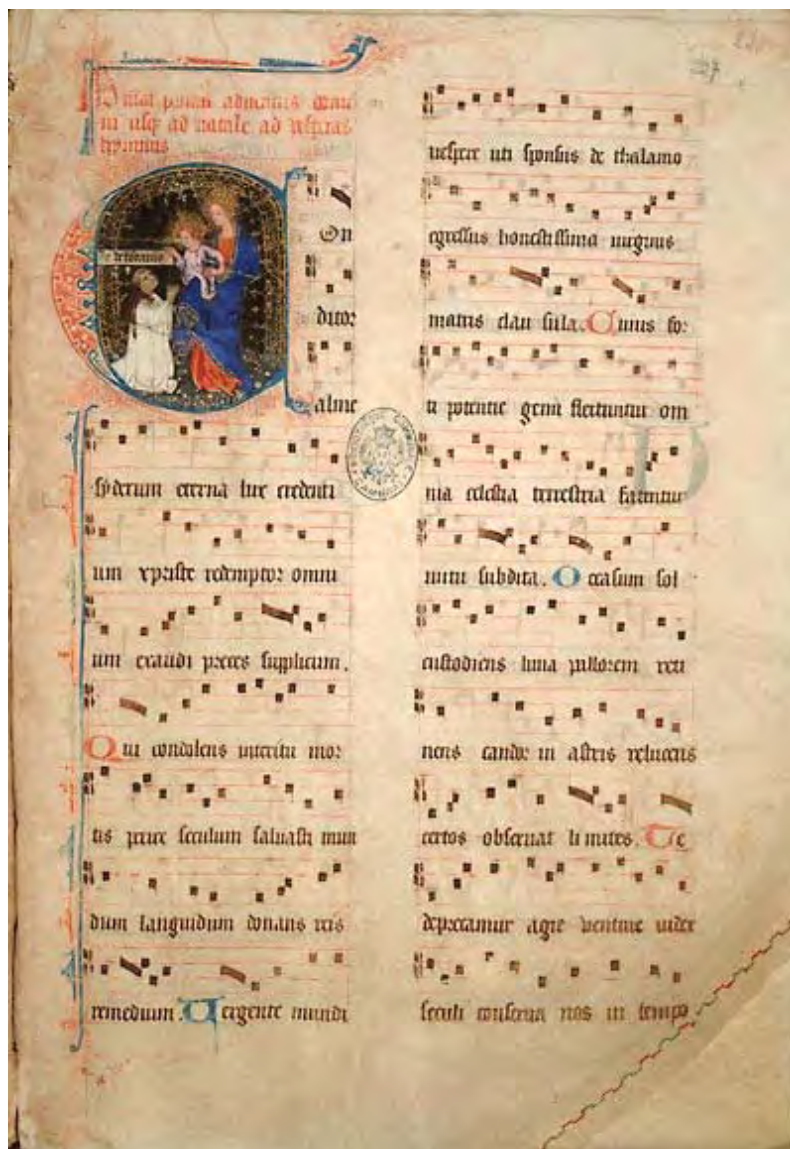 in usq ad natale ad vesperas
hymnus
On
ditor
alme
syderum eterna lux credenti
um xpriste redemptor omni
um exaudi preces supplicum.
Qui condolens interitu mor
tis perire seculum saluasti mun
dum languidum donans reis
remedium. Uergente mundi
uespere uti sponsus de thalamo
egressus honestissima uirginis
matris clau sula. Cuius for
ti potentie genu flectuntur om
nia celestia terrestria fatentur
nutu subdita. Occasum sol
custodiens luna pallorem reti
nens candor in astris relucens
certos obseruat limites. Te
deprecamur agie uenture iudex
seculi conserua nos in tempo